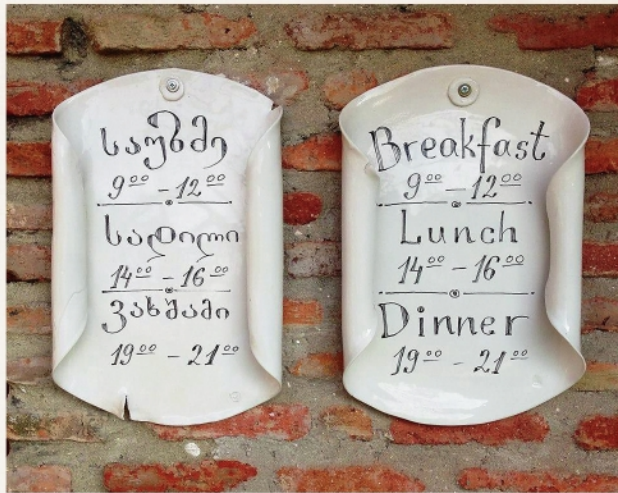 საუზმე
9⁰⁰ - 12⁰⁰
სადილი
14⁰⁰ - 16⁰⁰
ვახშამი
19⁰⁰ - 21⁰⁰
Breakfast
9⁰⁰ - 12⁰⁰
Lunch
14⁰⁰ - 16⁰⁰
Dinner
19⁰⁰ - 21⁰⁰